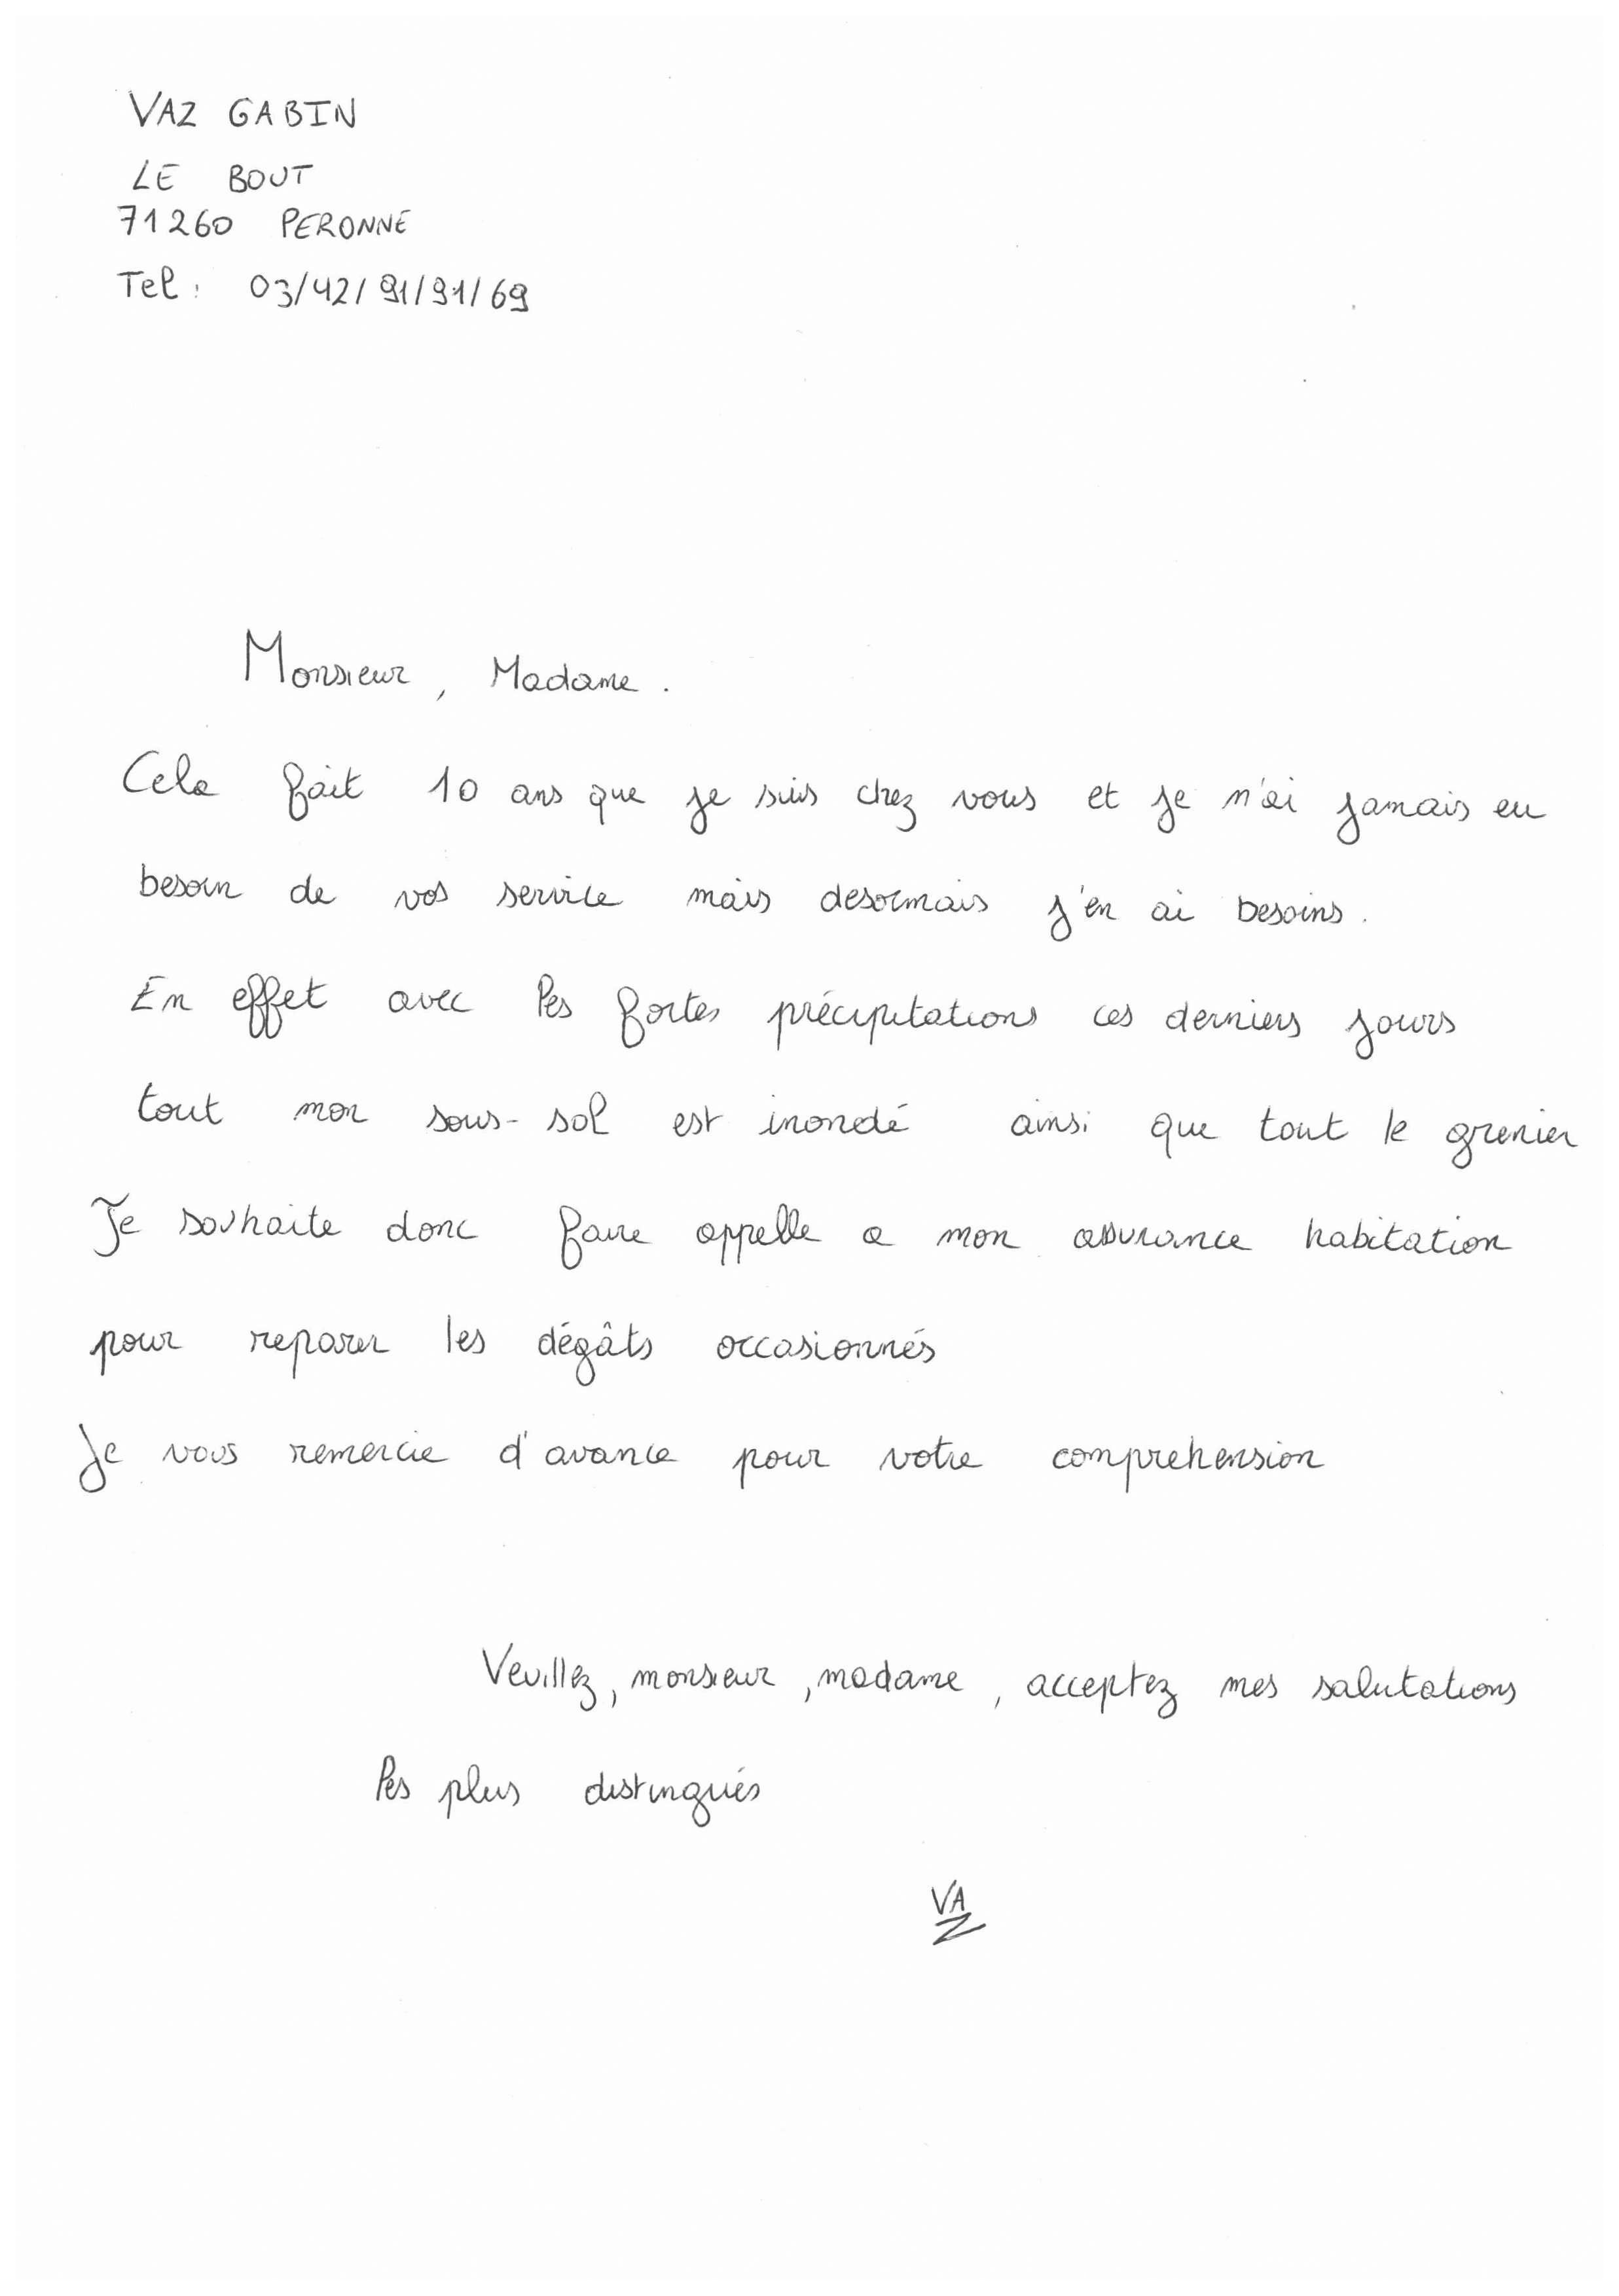 VAZ GABIN
LE BOUT
71260 PERONNE
Tel : 03/42/91/91/69
Monsieur, Madame.
Cela fait 10 ans que je suis chez vous et je n'ai jamais eu
besoin de vos service mais desormais j'en ai besoins.
En effet avec les fortes précipitations ces derniers jours
tout mon sous-sol est inondé ainsi que tout le grenier
Je souhaite donc faire appelle a mon assurance habitation
pour reparer les dégâts occasionnés
Je vous remercie d'avance pour votre comprehension
Veuillez, monsieur, madame, acceptez mes salutations
les plus distingués
VAZ